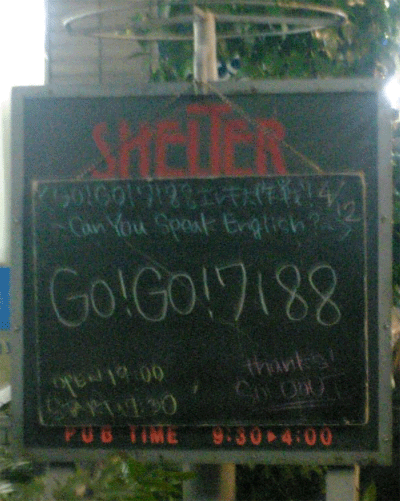 SHELTER
GO!GO!7188 4/12
~Can You Speak English?~
GO!GO!7188
OPEN 19:00
START 19:30
thanks!
SOLDOUT
PUB TIME 9:30▶4:00